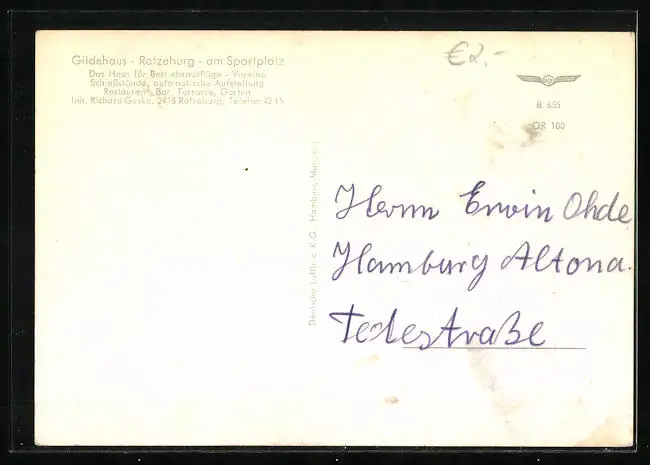 Gildehaus - Ratzeburg - am Sportplatz
Das Haus für Betriebsausflüge - Vereine
Schießstände, automatische Aufstellung
Restaurant, Bar, Terrasse, Garten
Inh. Richard Guske, 2418 Ratzeburg, Telefon 42 15
€2.-
B 655
OR 100
Deutsche Luftbild K.G. Hamburg
Herrn Erwin Ohde
Hamburg Altona.
Tedestraße